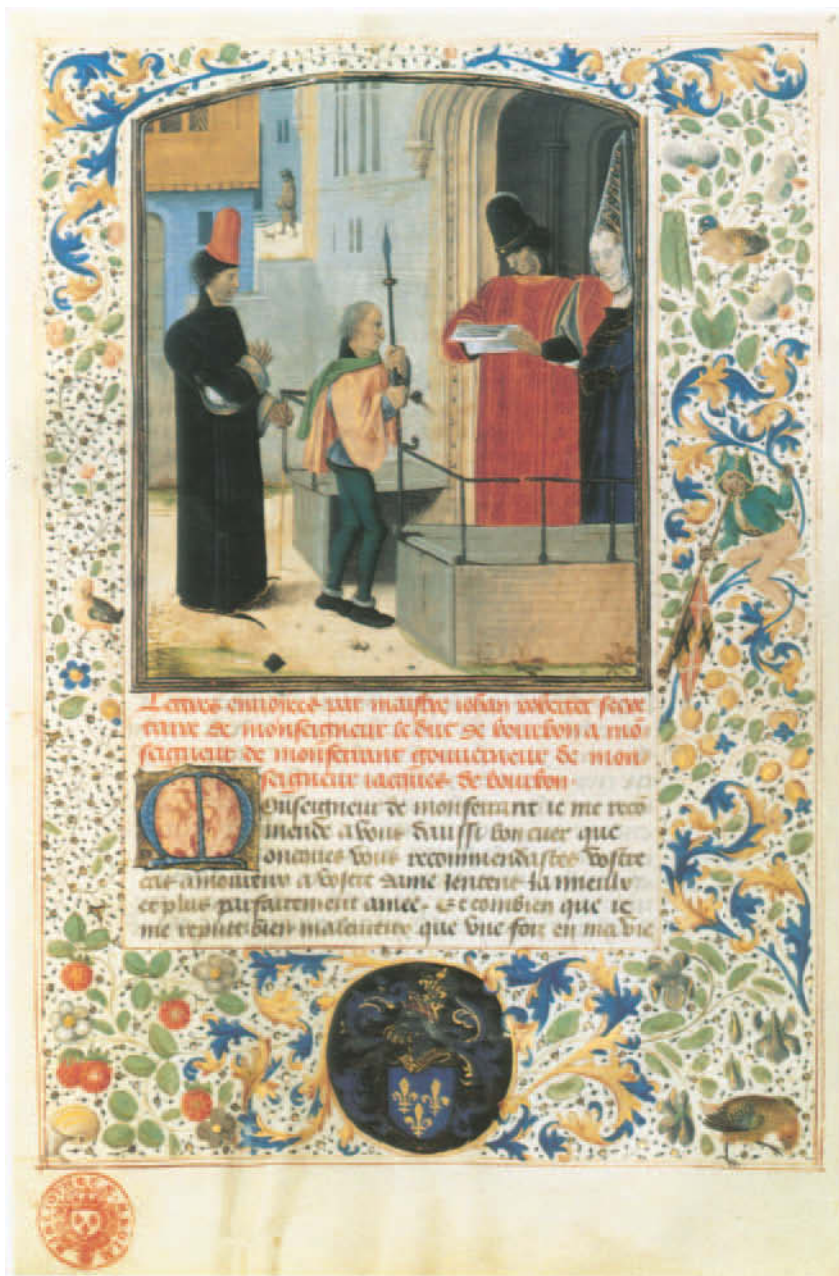 Lettres enuoiees par maistre iohan robertet secre
taire de monseigneur le duc de bourbon a mõ
seigneur de monferrant gouuerneur de mon
seigneur iacques de bourbon.
Monseigneur de monferrant ie me reco
mende a vous daussi bon cuer que
oncques vous recommendastes vostre
cas amoureux a vostre dame jentens la mieulx
et plus parfaitement amee. Et combien que ie
me repute bien maleureux que vne fois en ma vie